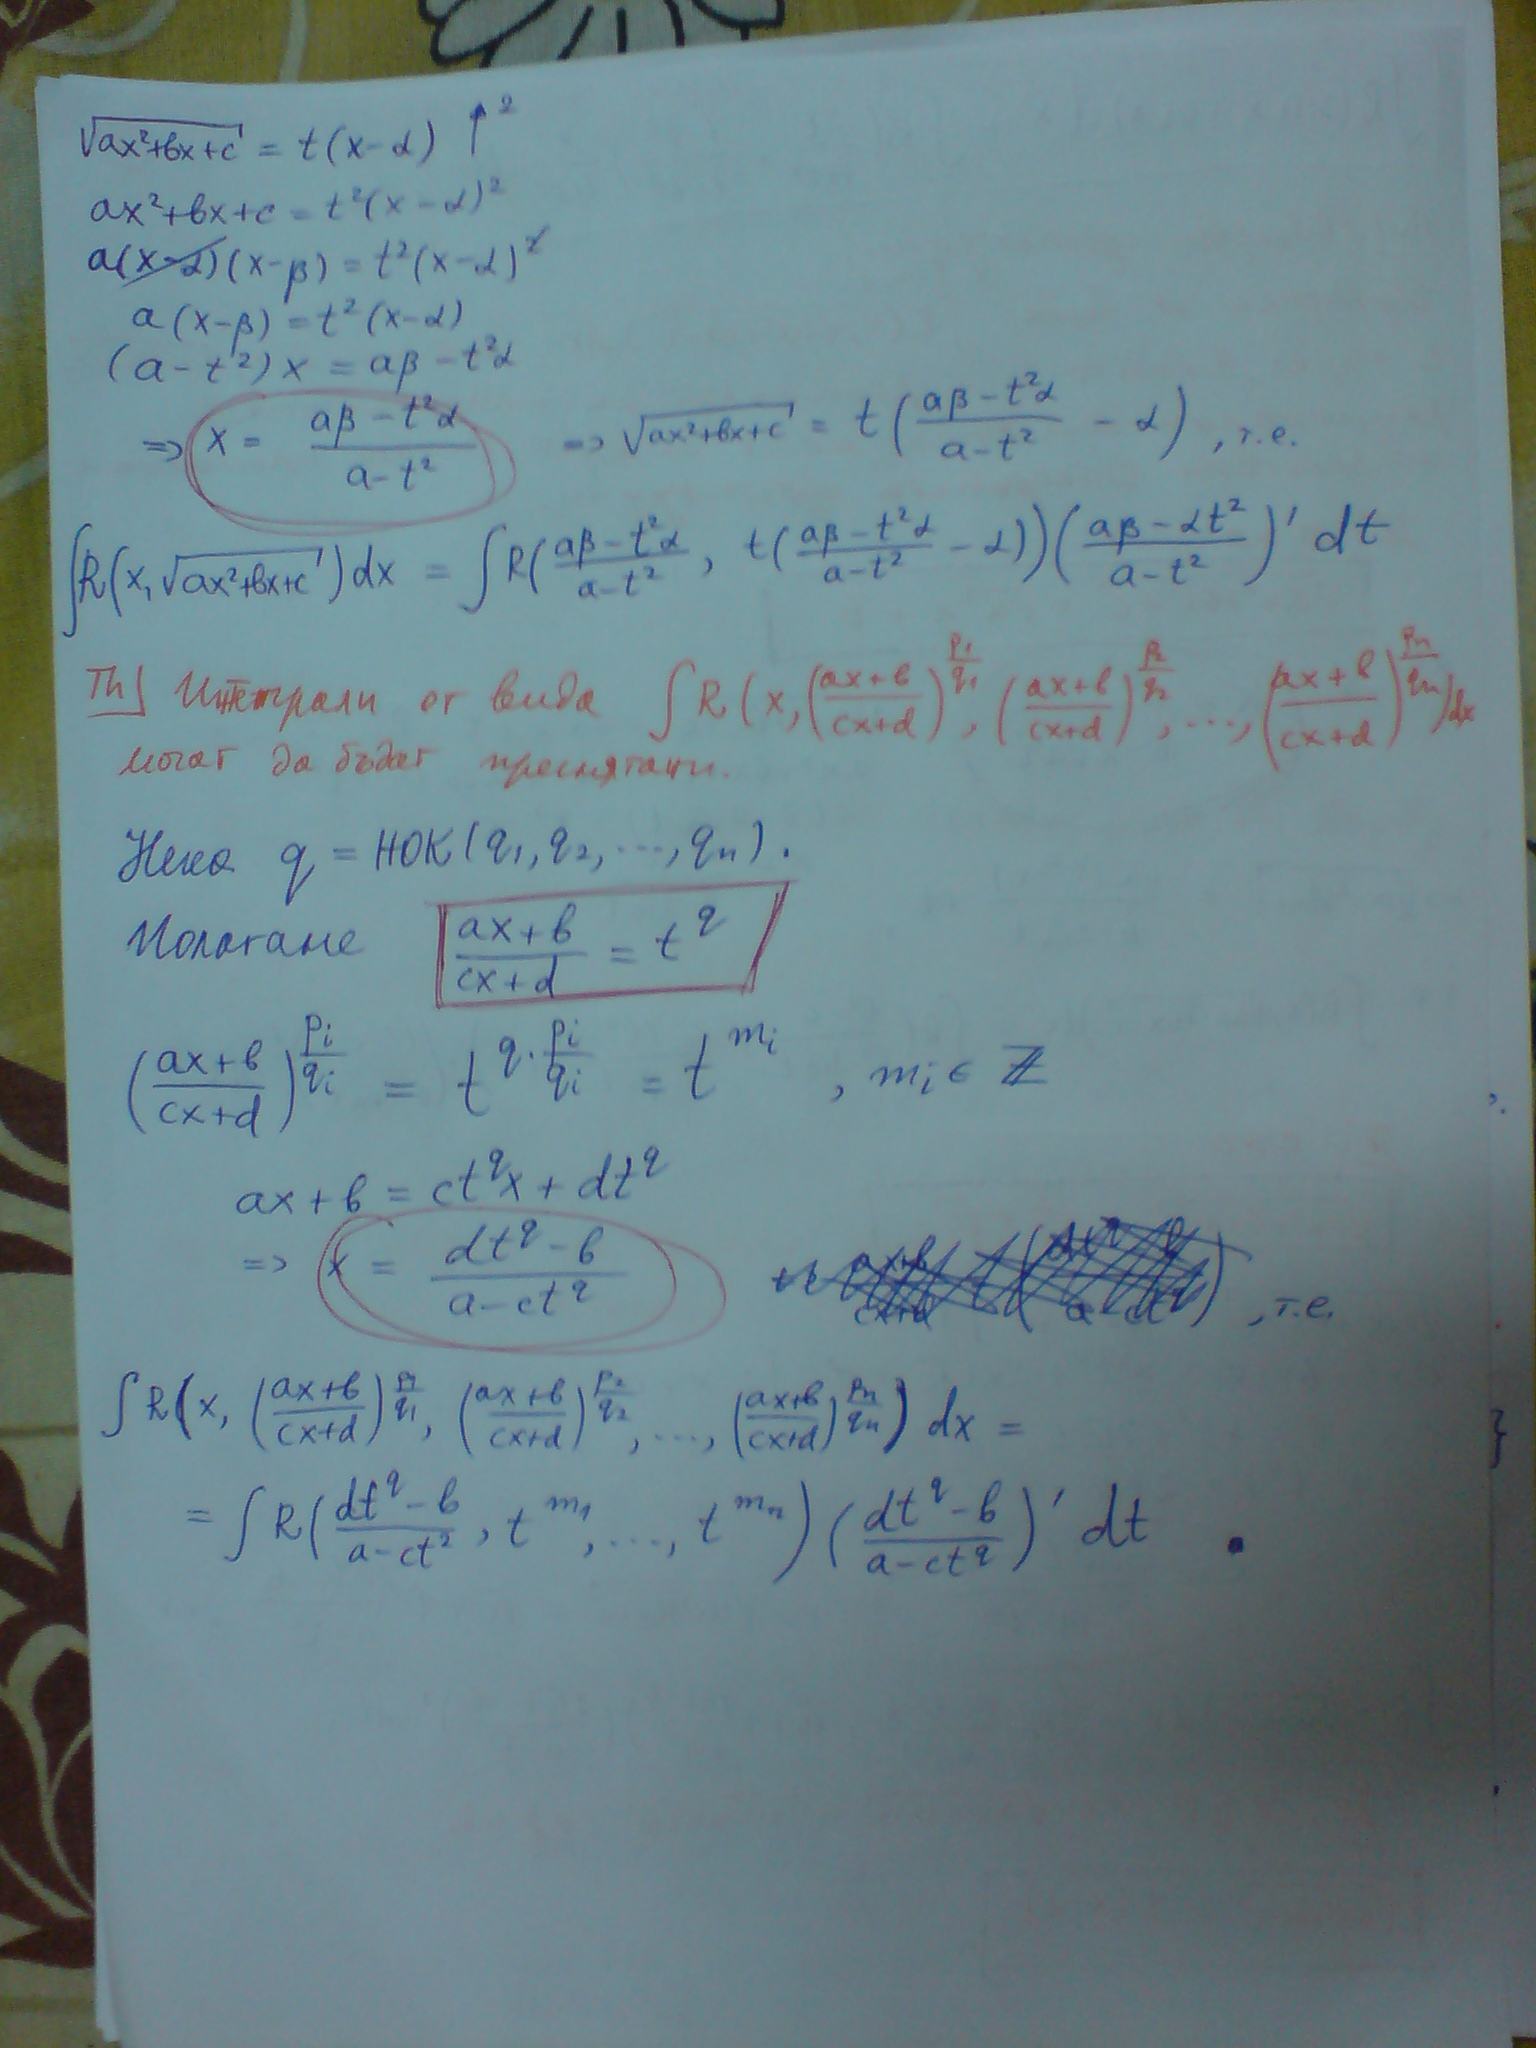 √(ax²+bx+c) = t(x-α) ↑²
ax²+bx+c = t²(x-α)²
a(x-α)(x-β) = t²(x-α)²
a(x-β) = t²(x-α)
(a-t²)x = aβ-t²α
=> x = (aβ-t²α)/(a-t²) => √(ax²+bx+c) = t((aβ-t²α)/(a-t²) - α), т.е.
∫R(x, √(ax²+bx+c))dx = ∫R((aβ-t²α)/(a-t²), t((aβ-t²α)/(a-t²) - α))((aβ-αt²)/(a-t²))' dt
Th] Интеграли от вида ∫R(x, ((ax+b)/(cx+d))^(p₁/q₁), ((ax+b)/(cx+d))^(p₂/q₂), ..., ((ax+b)/(cx+d))^(pₙ/qₙ))dx
могат да бъдат пресмятани.
Нека q = НОК(q₁, q₂, ..., qₙ).
Полагаме (ax+b)/(cx+d) = t^q
((ax+b)/(cx+d))^(pᵢ/qᵢ) = t^(q·pᵢ/qᵢ) = t^(mᵢ), mᵢ ∈ ℤ
ax+b = ct^q x + dt^q
=> x = (dt^q-b)/(a-ct^q) , т.е.
∫R(x, ((ax+b)/(cx+d))^(p₁/q₁), ((ax+b)/(cx+d))^(p₂/q₂), ..., ((ax+b)/(cx+d))^(pₙ/qₙ)) dx =
= ∫R((dt^q-b)/(a-ct²), t^(m₁), ..., t^(mₙ))((dt^q-b)/(a-ct^q))' dt .